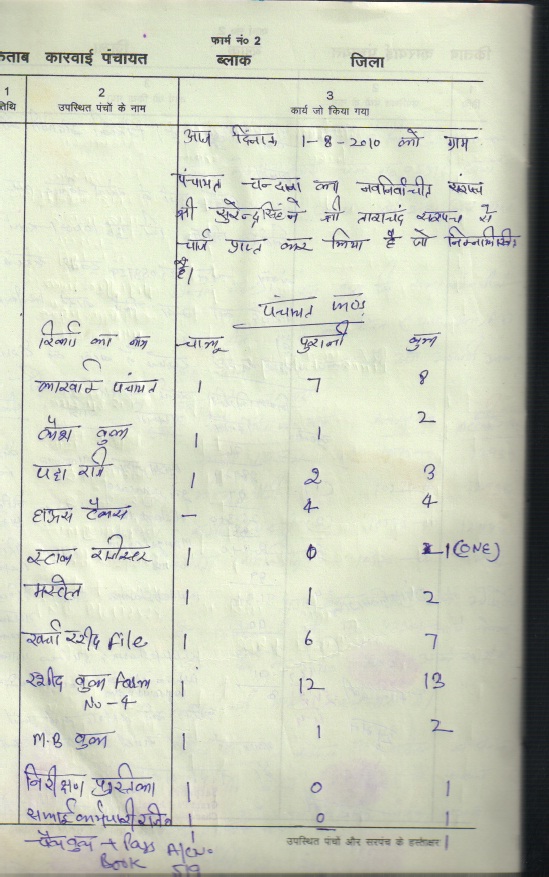 फार्म नं० 2
किताब कारवाई पंचायत ब्लाक जिला
1 2 3
तिथि उपस्थित पंचों के नाम कार्य जो किया गया
आज दिनांक 1-8-2010 को ग्राम
पंचायत चन्दाना का नवनिर्वाचीत सरपंच
श्री सुरेन्द्र सिंह ने श्री ताराचंद सरपंच से
चार्ज प्राप्त कर लिया है जो निम्नलिखित
है।
पंचायत फण्ड
रिकार्ड का नाम चालू पुरानी कुल
कारवाई पंचायत 1 7 8
कैश बुक 1 1 2
पट्टा रजि 1 2 3
हाऊस टैक्स — 4 4
स्टाक रजीस्टर 1 0 1 (ONE)
मस्ट्रोल 1 1 2
खर्चा रशीद File 1 6 7
रशीद बुक Form 1 12 13
No-4
M.B बुक 1 1 2
निरीक्षण पुस्तिका 1 0 1
सफाई कर्मचारी रजि 1 0 1
उपस्थित पंचों और सरपंच के हस्ताक्षर
चैक बुक + Pass A/c No.
Book 519